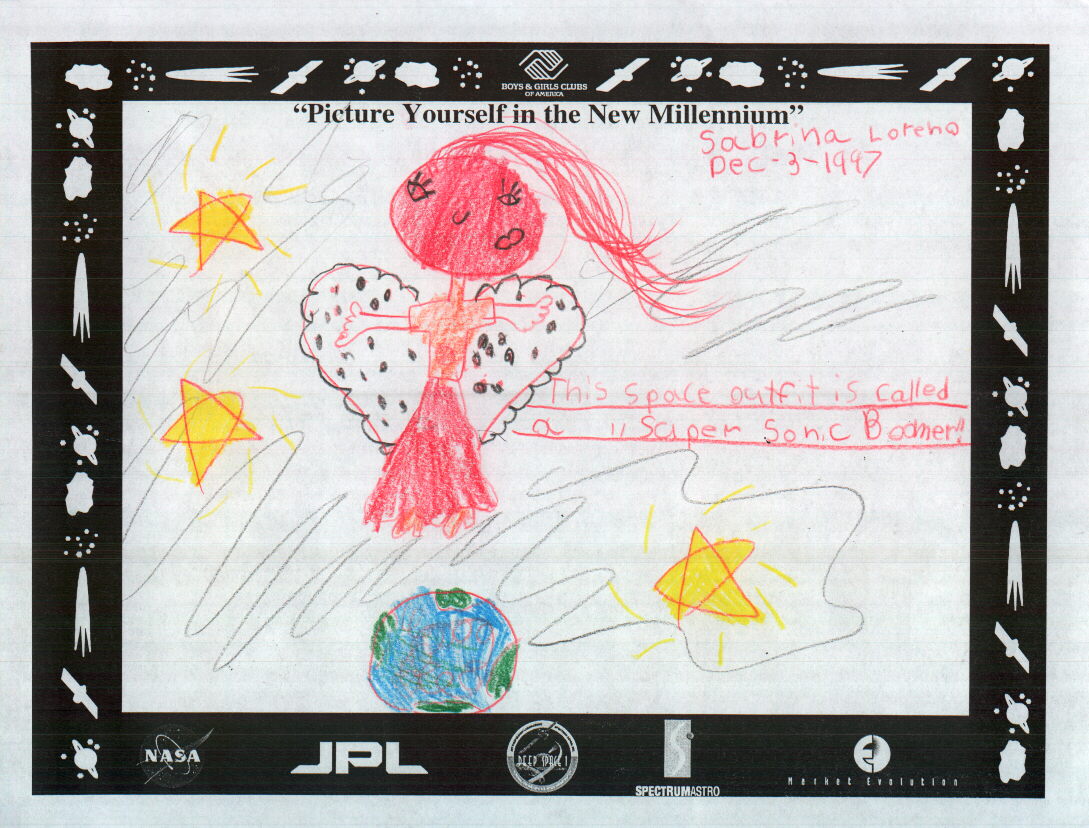 BOYS & GIRLS CLUBS
OF AMERICA
“Picture Yourself in the New Millennium”
Sabrina Loreno
Dec-3-1997
This space outfit is called
a "Super Sonic Boomer"
NASA
JPL
DEEP SPACE 1
SPECTRUMASTRO
Market Evolution